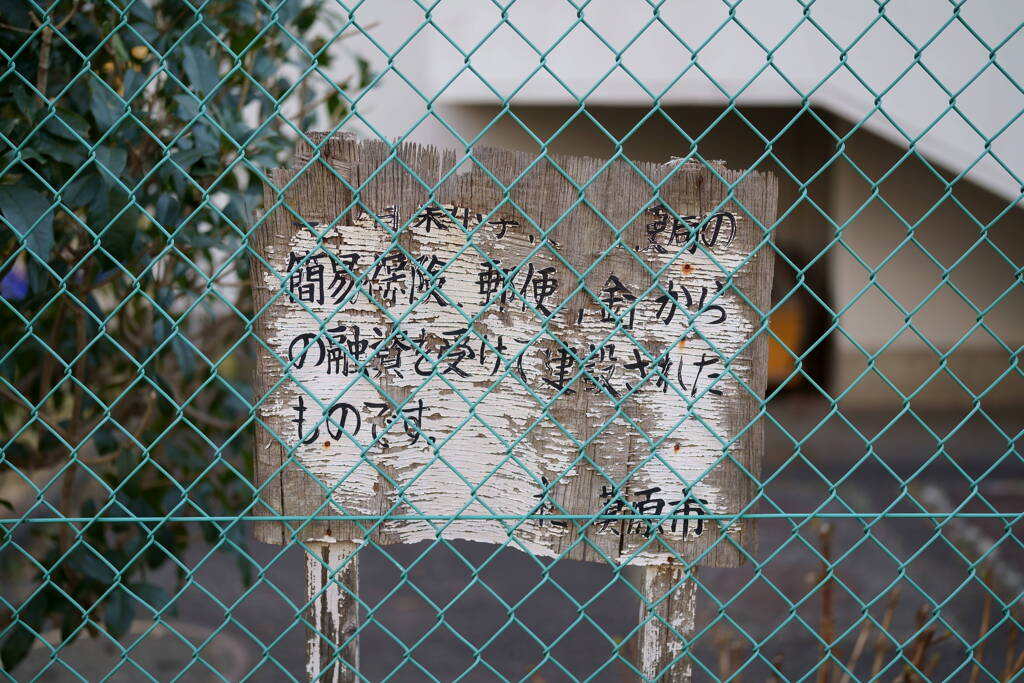 の
簡易保険、郵便 金から
の融資を受けて建設された
ものです。
原市